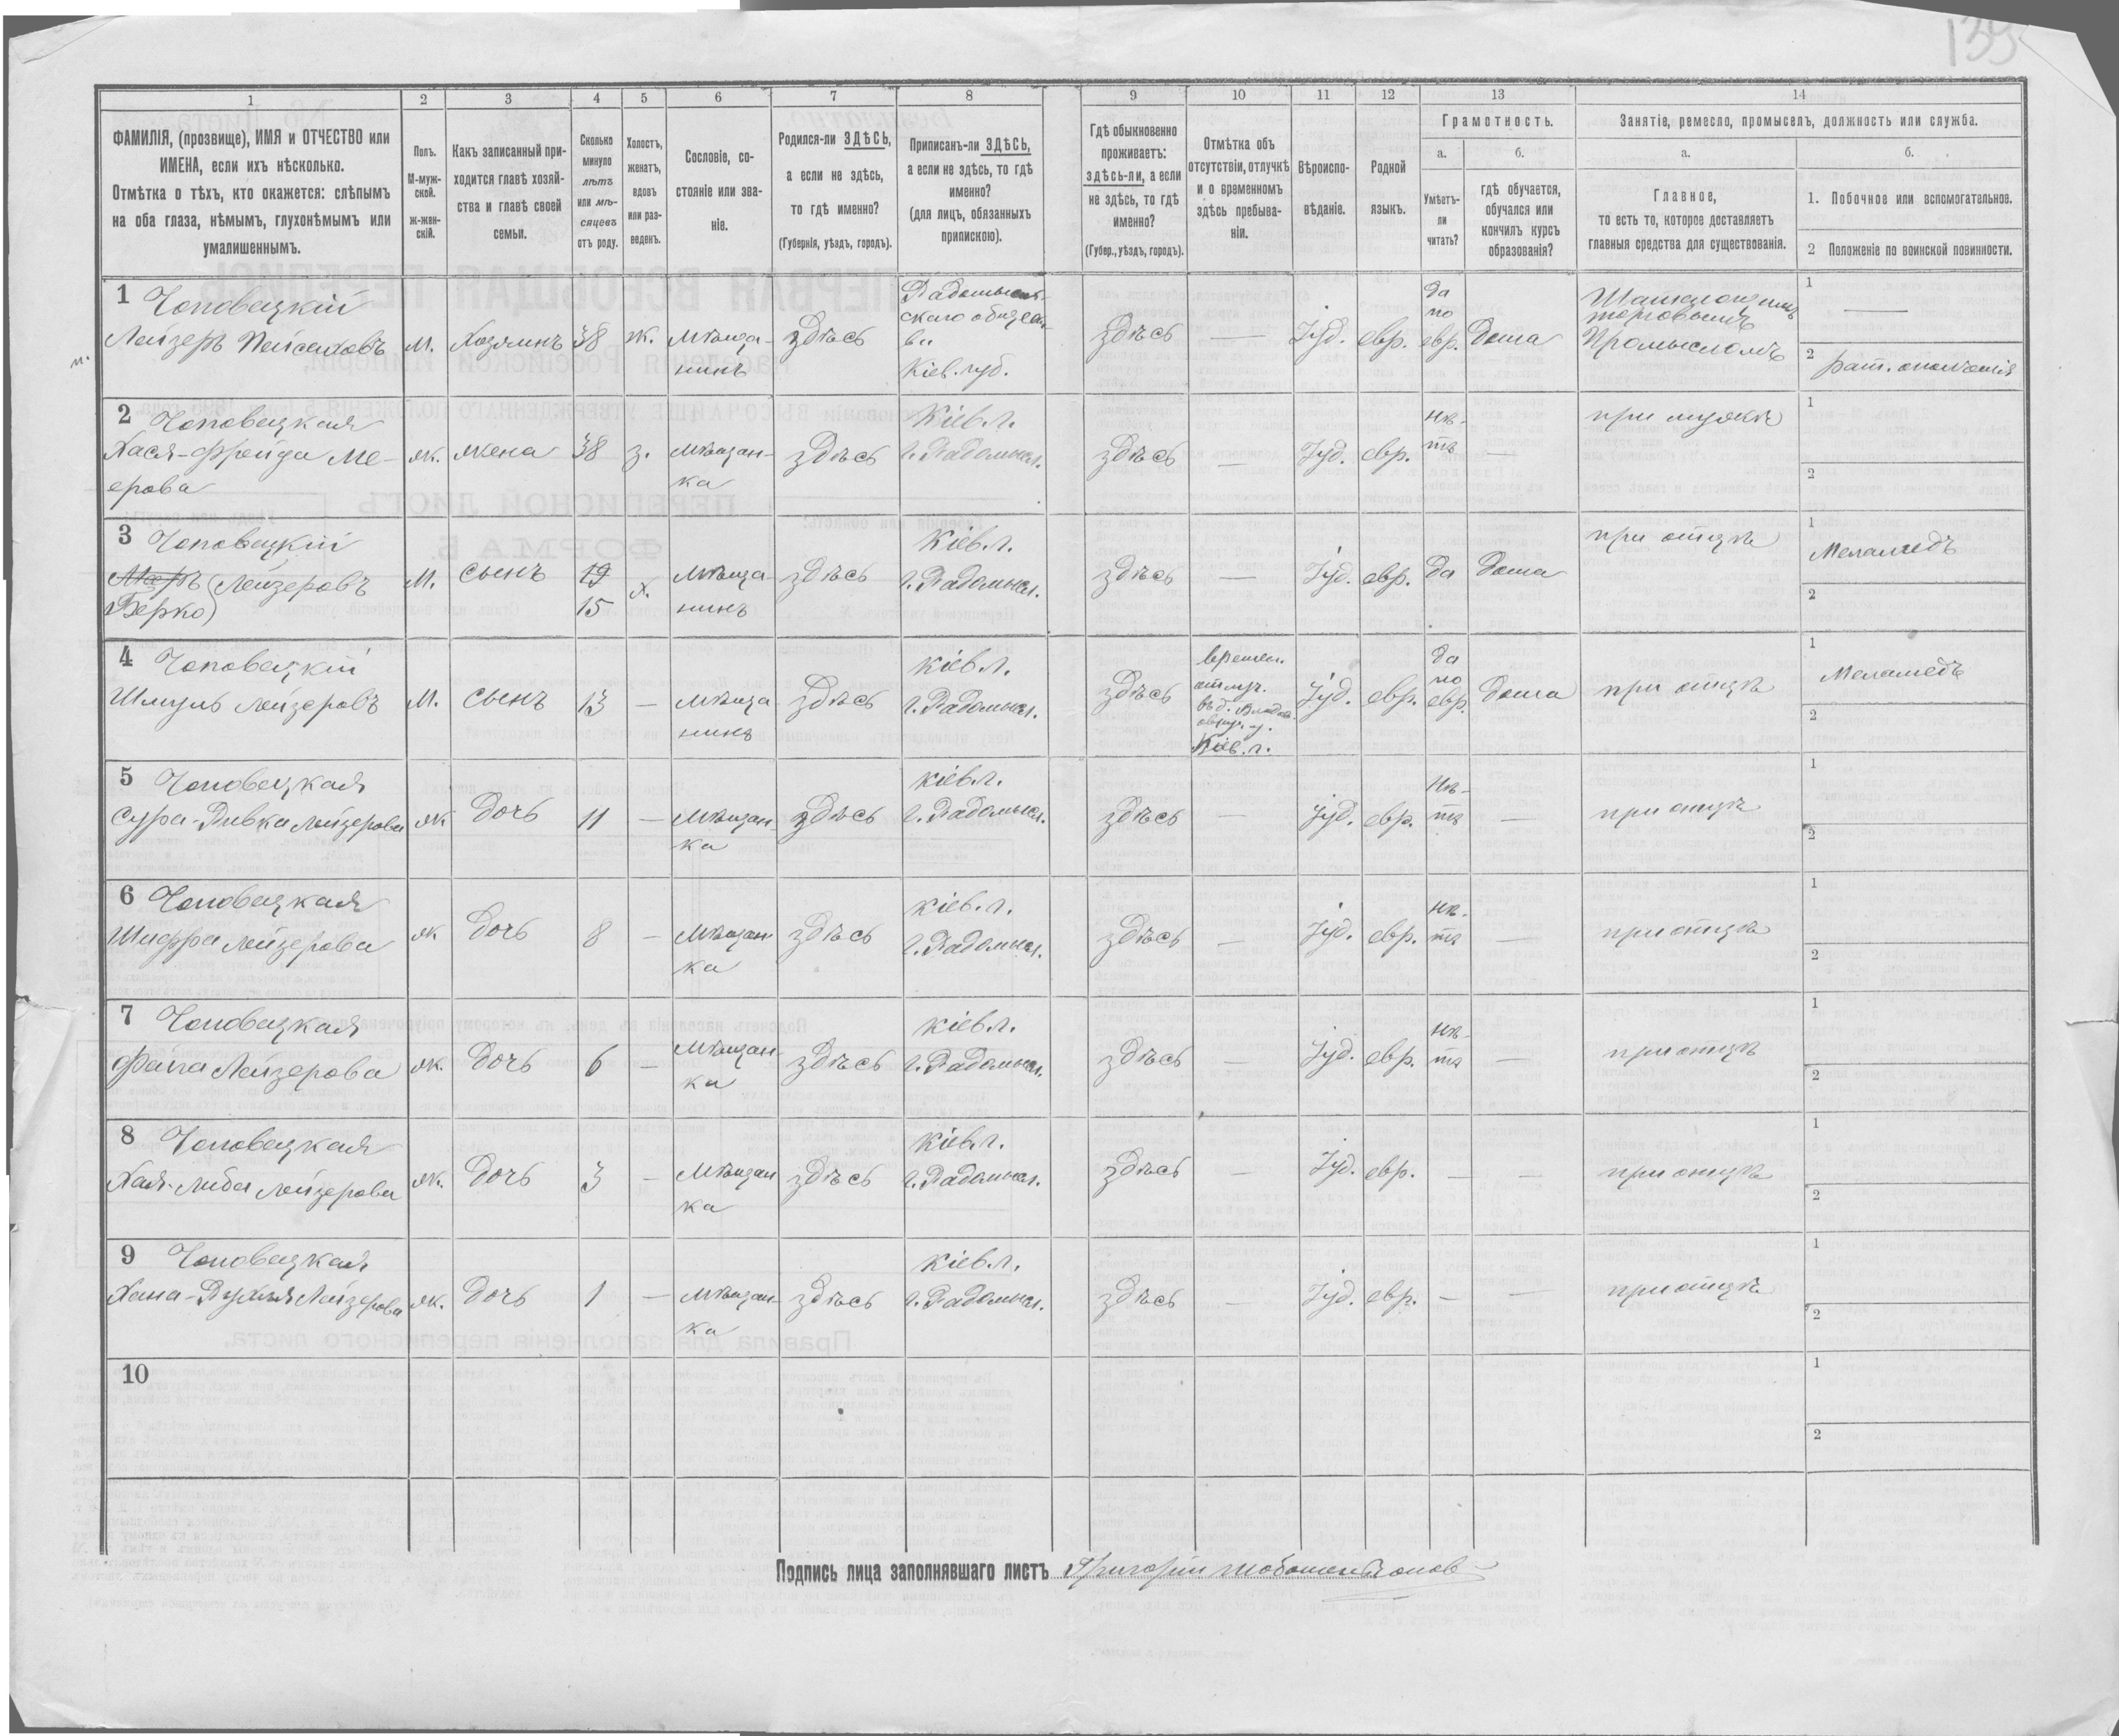 139
1 2 3 4 5 6 7 8 9 10 11 12 13 14
ФАМИЛІЯ, (прозвище), ИМЯ и ОТЧЕСТВО или
ИМЕНА, если ихъ нѣсколько.
Отмѣтка о тѣхъ, кто окажется: слѣпымъ
на оба глаза, нѣмымъ, глухонѣмымъ или
умалишеннымъ.
Полъ.
М-муж-
ской.
ж-жен-
скій.
Какъ записанный при-
ходится главѣ хозяй-
ства и главѣ своей
семьи.
Сколько
минуло
лѣтъ
или мѣ-
сяцевъ
отъ роду.
Холостъ,
женатъ,
вдовъ
или раз-
веденъ.
Сословіе, со-
стояніе или зва-
ніе.
Родился-ли ЗДѢСЬ,
а если не здѣсь,
то гдѣ именно?
(Губернія, уѣздъ, городъ).
Приписанъ-ли ЗДѢСЬ,
а если не здѣсь, то гдѣ
именно?
(для лицъ, обязанныхъ
припискою).
Гдѣ обыкновенно
проживаетъ:
здѣсь-ли, а если
не здѣсь, то гдѣ
именно?
(Губер., уѣздъ, городъ).
Отмѣтка объ
отсутствіи, отлучкѣ
и о временномъ
здѣсь пребыва-
ніи.
Вѣроиспо-
вѣданіе.
Родной
языкъ.
Грамотность.
а.
Умѣетъ-
ли
читать?
б.
гдѣ обучается,
обучался или
кончилъ курсъ
образованія?
Занятіе, ремесло, промыселъ, должность или служба.
а.
Главное,
то есть то, которое доставляетъ
главныя средства для существованія.
б.
1. Побочное или вспомогательное.
2 Положеніе по воинской повинности.
1 Чоповецкій
Лейзеръ Пейсаховъ
М.
Хозяинъ
38
ж.
Мѣща-
нинъ
здѣсь
Радомысль-
скаго
Кіев. губ.
здѣсь
—
Іуд.
евр.
да
по
евр.
Дома
торговымъ
Промысломъ
1 —
2 рат. ополченія
2 Чоповецкая
Хася-Фрейда Ме-
ерова
ж.
жена
38
з.
мѣщан-
ка
здѣсь
Кіев. г.
г. Радомысл.
здѣсь
—
Іуд.
евр.
нѣ-
тъ
—
при мужѣ
1
2
3 Чоповецкій
(Лейзеровъ
Берко)
М.
сынъ
19
15
х.
Мѣща-
нинъ
здѣсь
Кіев. г.
г. Радомысл.
здѣсь
—
Іуд.
евр.
да
Дома
при отцѣ
1 Меламедъ
2
4 Чоповецкій
Шмуль Лейзеровъ
М.
сынъ
13
—
Мѣща
нинъ
здѣсь
кіев. г.
г. Радомысл.
здѣсь
времен.
отлуч.
Кіев. г.
Іуд.
евр.
да
по
евр.
Дома
при отцѣ
1 Меламедъ
2
5 Чоповецкая
Сура-Ривка Лейзерова
ж
дочь
11
—
Мѣщан-
ка
здѣсь
кіев. г.
г. Радомысл.
здѣсь
—
Іуд.
евр.
Нѣ-
тъ
—
при отцѣ
1
2
6 Чоповецкая
Шифра Лейзерова
ж
дочь
8
—
Мѣщан
ка
здѣсь
кіев. г.
г. Радомысл.
здѣсь
—
Іуд.
евр.
нѣ-
тъ
—
при отцѣ
1
2
7 Чоповецкая
Фейга Лейзерова
ж.
дочь
6
—
Мѣщан-
ка
здѣсь
кіев. г.
г. Радомысл.
здѣсь
—
Іуд.
евр.
нѣ-
тъ
—
при отцѣ
1
2
8 Чоповецкая
Хая-Либа Лейзерова
ж.
дочь
3
—
Мѣщан
ка
здѣсь
кіев. г.
г. Радомысл.
здѣсь
—
Іуд.
евр.
—
—
при отцѣ
1
2
9 Чоповецкая
Хана-Рухля Лейзерова
ж.
дочь
1
—
Мѣщан-
ка
здѣсь
кіев. г.
г. Радомысл.
здѣсь
—
Іуд.
евр.
—
—
при отцѣ
1
2
10
1
2
Подпись лица заполнявшаго листъ Григорій